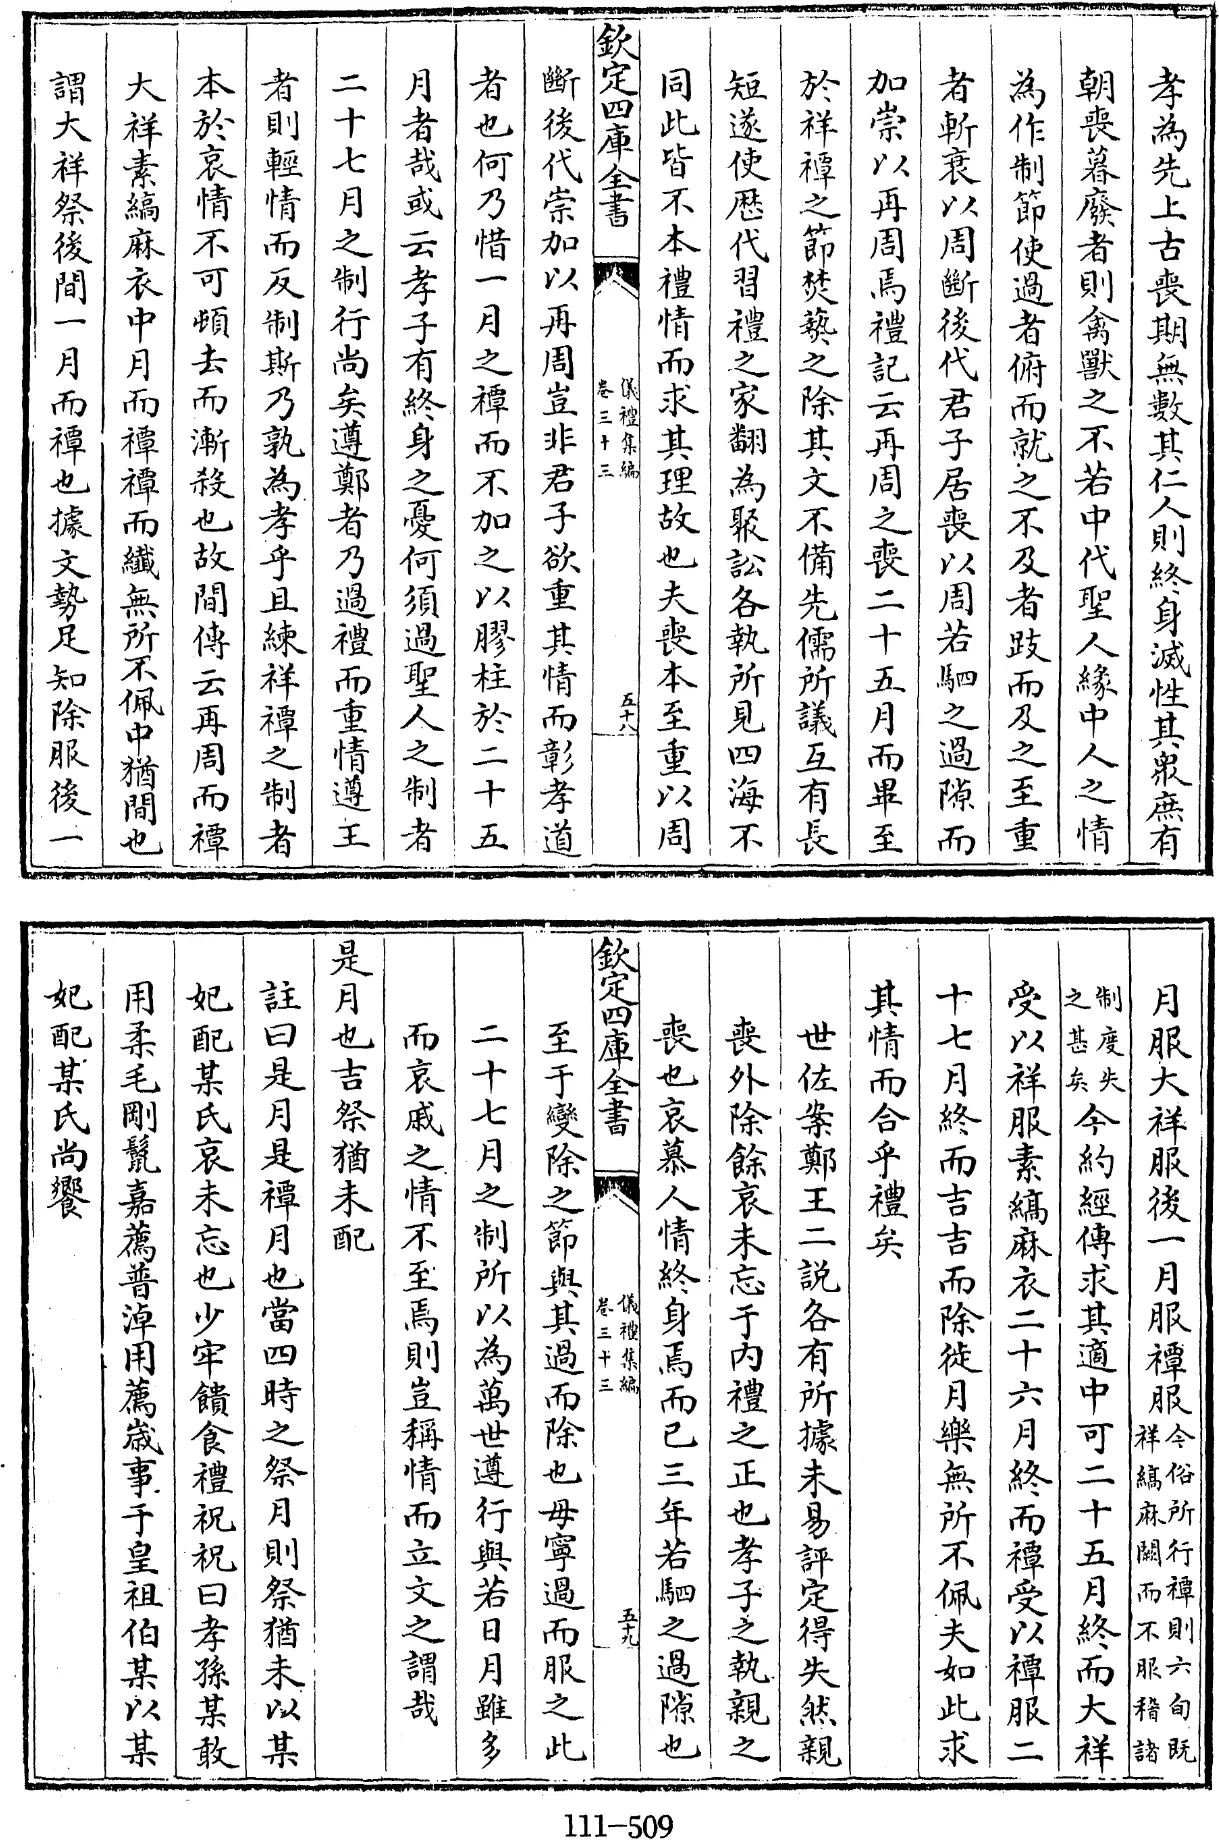 孝為先上古喪期無數其仁人則終身滅性其衆庶有
朝喪暮廢者則禽獸之不若中代聖人緣中人之情
為作制節使過者俯而就之不及者跂而及之至重
者斬衰以周斷後代君子居喪以周若駟之過隙而
加崇以再周焉禮記云再周之喪二十五月而畢至
於祥禫之節焚爇之除其文不備先儒所議互有長
短遂使歴代習禮之家翻為聚訟各執所見四海不
同此皆不本禮情而求其理故也夫喪本至重以周
欽定四庫全書
儀禮集編
卷三十三
五十八
斷後代崇加以再周豈非君子欲重其情而彰孝道
者也何乃惜一月之禫而不加之以膠柱於二十五
月者哉或云孝子有終身之憂何須過聖人之制者
二十七月之制行尚矣遵鄭者乃過禮而重情遵王
者則輕情而反制斯乃孰為孝乎且練祥禫之制者
本於哀情不可頓去而漸殺也故間傳云再周而禫
大祥素縞麻衣中月而禫禫而纖無所不佩中猶間也
謂大祥祭後間一月而禫也據文勢足知除服後一
月服大祥服後一月服禫服今俗所行禫則六旬既
祥縞麻闕而不服稽諸
制度失
之甚矣今約經傳求其適中可二十五月終而大祥
受以祥服素縞麻衣二十六月終而禫受以禫服二
十七月終而吉吉而除徙月樂無所不佩夫如此求
其情而合乎禮矣
世佐案鄭王二說各有所據未易評定得失然親
喪外除餘哀未忘于内禮之正也孝子之執親之
喪也哀慕人情終身焉而已三年若駟之過隙也
欽定四庫全書
儀禮集編
卷三十三
五十九
至于變除之節與其過而除也毋寧過而服之此
二十七月之制所以為萬世遵行與若日月雖多
而哀戚之情不至焉則豈稱情而立文之謂哉
是月也吉祭猶未配
註曰是月是禫月也當四時之祭月則祭猶未以某
妃配某氏哀未忘也少牢饋食禮祝祝曰孝孫某敢
用柔毛剛鬛嘉薦普淖用薦歳事于皇祖伯某以某
妃配某氏尚饗
111-509